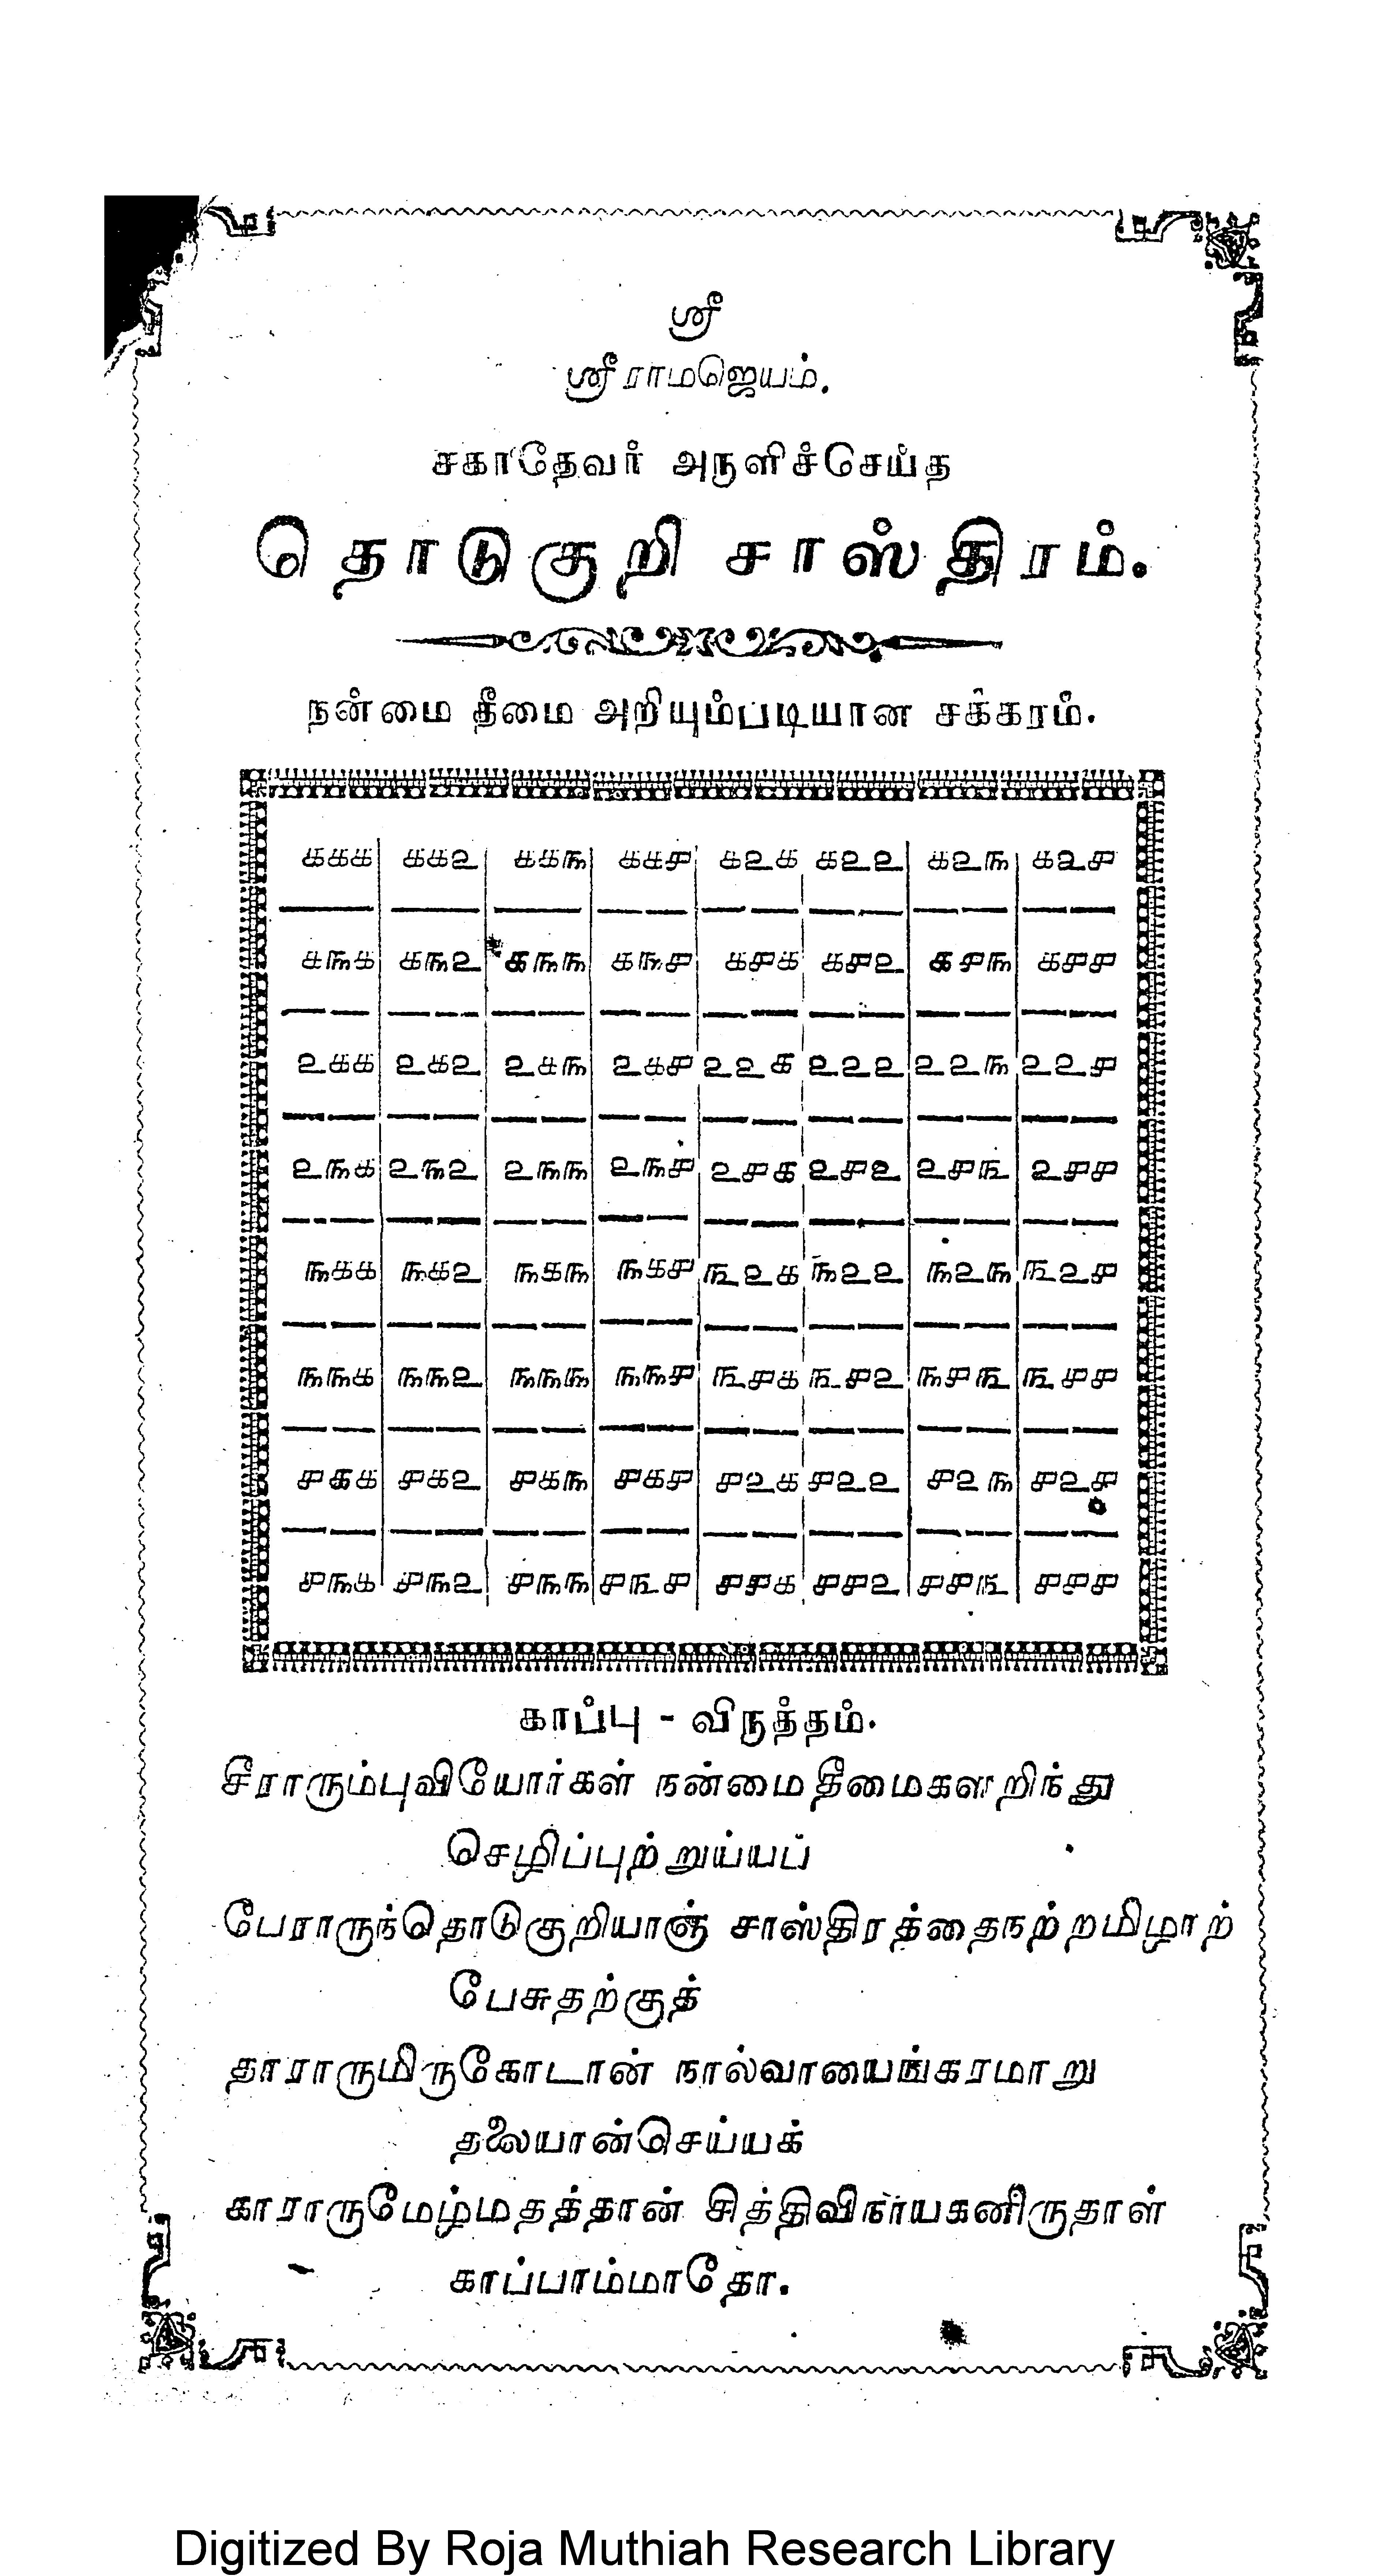 ஸ்ரீ
ஸ்ரீராமஜெயம்.
சகாதேவர் அருளிச்செய்த
தொடுகுறி சாஸ்திரம்.
நன்மை தீமை அறியும்படியான சக்கரம்.
௧௧௧ ௧௧௨ ௧௧௩ ௧௧௪ ௧௨௧ ௧௨௨ ௧௨௩ ௧௨௪
௧௩௧ ௧௩௨ ௧௩௩ ௧௩௪ ௧௪௧ ௧௪௨ ௧௪௩ ௧௪௪
௨௧௧ ௨௧௨ ௨௧௩ ௨௧௪ ௨௨௧ ௨௨௨ ௨௨௩ ௨௨௪
௨௩௧ ௨௩௨ ௨௩௩ ௨௩௪ ௨௪௧ ௨௪௨ ௨௪௩ ௨௪௪
௩௧௧ ௩௧௨ ௩௧௩ ௩௧௪ ௩௨௧ ௩௨௨ ௩௨௩ ௩௨௪
௩௩௧ ௩௩௨ ௩௩௩ ௩௩௪ ௩௪௧ ௩௪௨ ௩௪௩ ௩௪௪
௪௧௧ ௪௧௨ ௪௧௩ ௪௧௪ ௪௨௧ ௪௨௨ ௪௨௩ ௪௨௪
௪௩௧ ௪௩௨ ௪௩௩ ௪௩௪ ௪௪௧ ௪௪௨ ௪௪௩ ௪௪௪
காப்பு - விருத்தம்.
சீராரும்புவியோர்கள் நன்மைதீமைகளறிந்து
செழிப்புற்றுய்யப்
பேராருந்தொடுகுறியாஞ் சாஸ்திரத்தைநற்றமிழாற்
பேசுதற்குத்
தாராருமிருகோடான் நால்வாயைங்கரமாறு
தலையான்செய்யக்
காராருமேழ்மதத்தான் சித்திவிநாயகனிருதாள்
காப்பாம்மாதோ.
Digitized By Roja Muthiah Research Library